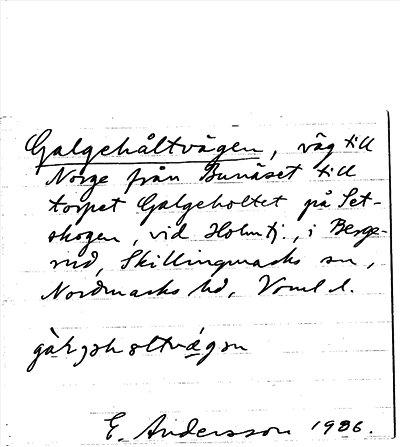 Galgehåltvägen, väg till
Norge från Bunäset till
torpet Galgeholtet på Set-
skogen, vid Holmtj., i Berge-
rud, Skillingmarks sn,
Nordmarks hd, Vrml l.
E. Andersson 1936.